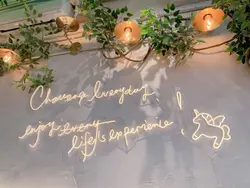 Everyday !
enjoy every
life's experience